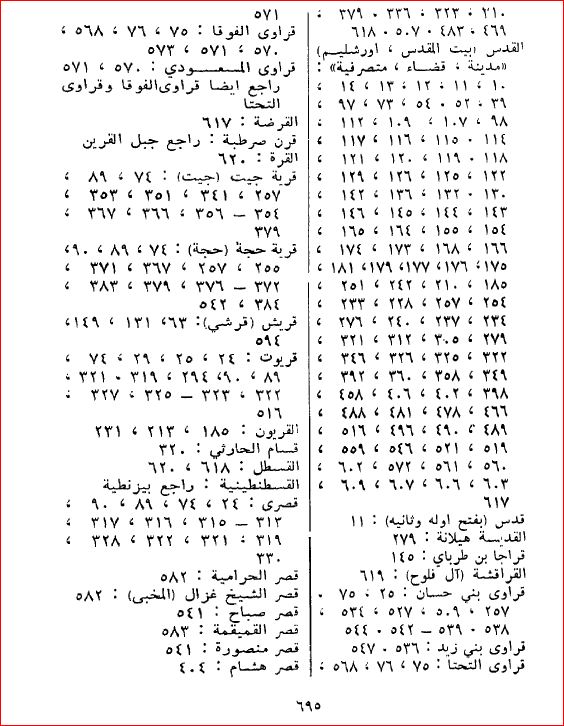 ٢١٠ ، ٣٢٣ ، ٣٣٦ ، ٣٧٩ ،
٤٦٩ ، ٤٨٣ ، ٥٠٧ ، ٦١٨
القدس (بيت المقدس ، اورشليم)
«مدينة ، قضاء ، متصرفية» :
١٠ ، ١١ ، ١٢ ، ١٣ ، ١٤ ،
٣٩ ، ٥٢ ، ٥٤ ، ٧٣ ، ٩٧ ،
٩٨ ، ١٠٧ ، ١٠٩ ، ١١٢ ،
١١٤ ، ١١٥ ، ١١٦ ، ١١٧ ،
١١٨ ، ١١٩ ، ١٢٠ ، ١٢١ ،
١٢٢ ، ١٢٥ ، ١٢٦ ، ١٢٩ ،
١٣٠ ، ١٣٢ ، ١٣٦ ، ١٤٢ ،
١٤٣ ، ١٤٤ ، ١٤٥ ، ١٤٦ ،
١٥٤ ، ١٥٥ ، ١٦٤ ، ١٦٥ ،
١٦٦ ، ١٦٨ ، ١٧٣ ، ١٧٤ ،
١٧٥، ١٧٦ ، ١٧٧، ١٧٩، ١٨١ ،
١٨٥ ، ٢١٠ ، ٢٤٢ ، ٢٥١ ،
٢٥٤ ، ٢٥٧ ، ٢٢٨ ، ٢٣٣ ،
٢٣٤ ، ٢٣٧ ، ٢٤٠ ، ٢٧٦ ،
٢٧٩ ، ٣٠٥ ، ٣١٢ ، ٣٢١ ،
٣٢٢ ، ٣٢٥ ، ٣٢٦ ، ٣٤٦ ،
٣٤٩ ، ٣٥٨ ، ٣٦٠ ، ٣٩٢ ،
٣٩٨ ، ٤٠٢ ، ٤٠٦ ، ٤٥٨ ،
٤٦٦ ، ٤٧٨ ، ٤٨١ ، ٤٨٨ ،
٤٨٩ ، ٤٩٠ ، ٤٩٦ ، ٥١٦ ،
٥١٩ ، ٥٢١ ، ٥٤٦ ، ٥٥٩ ،
٥٦٠ ، ٥٦١ ، ٥٧٢ ، ٦٠٢ ،
٦٠٣ ، ٦٠٦ ، ٦٠٧ ، ٦٠٩ ،
٦١٧
قدس (بفتح اوله وثانيه) : ١١
القديسة هيلانة : ٢٧٩
قراجا بن طرباي : ١٤٥
القراقشة (آل فلوح) : ٦١٩
قراوى بني حسان : ٢٥ ، ٧٥ ،
٢٥٧ ، ٥٠٩ ، ٥٢٧ ، ٥٣٤ ،
٥٣٨ ، ٥٣٩ – ٥٤٢ ، ٥٤٤
قراوى بني زيد : ٥٣٦ ، ٥٤٧
قراوى التحتا : ٧٥ ، ٧٦ ، ٥٦٨ ،
٥٧١
قراوى الفوقا : ٧٥ ، ٧٦ ، ٥٦٨ ،
٥٧٠ ، ٥٧١ ، ٥٧٣
قراوى المسعودي : ٥٧٠ ، ٥٧١
راجع ايضا قراوى الفوقا وقراوى
التحتا
القرضة : ٦١٧
قرن صرطبة : راجع جبل القرين
القرة : ٦٢٠
قرية جيت (جيت) : ٧٤ ، ٨٩ ،
٢٥٧ ، ٣٤١ ، ٣٥١ ، ٣٥٣ ،
٣٥٤ – ٣٥٦ ، ٣٦٦ ، ٣٦٧ ،
٣٧٩
قرية حجة (حجة) : ٧٤ ، ٨٩ ، ٩٠،
٢٥٥ ، ٢٥٧ ، ٣٦٧ ، ٣٧١ ،
٣٧٢ – ٣٧٦ ، ٣٧٩ ، ٣٨٣ ،
٣٨٤ ، ٥٤٢
قريش (قرشي) : ٦٣، ١٣١ ، ١٤٩،
٥٩٤
قريوت : ٢٤ ، ٢٥ ، ٢٩ ، ٧٤ ،
٨٩ ، ٩٠، ٢٩٤ ، ٣١٩ ، ٣٢١ ،
٣٢٢ ، ٣٢٣ – ٣٢٥ ، ٣٢٧ ،
٥١٦
القريون : ١٨٥ ، ٢١٣ ، ٢٣١
قسام الحارثي : ٣٢٠
القسطل : ٦١٨ ، ٦٢٠
القسطنطينية : راجع بيزنطية
قصرى : ٢٤ ، ٧٤ ، ٨٩ ، ٩٠ ،
٣١٣ – ٣١٥ ، ٣١٦ ، ٣١٧ ،
٣١٩ ، ٣٢١ ، ٣٢٢ ، ٣٢٨ ،
٣٣٠
قصر الحرامية : ٥٨٢
قصر الشيخ غزال (المخبى) : ٥٨٢
قصر صباح : ٥٤١
قصر القميقمة : ٥٨٣
قصر منصورة : ٥٤١
قصر هشام : ٤٠٤
٦٩٥